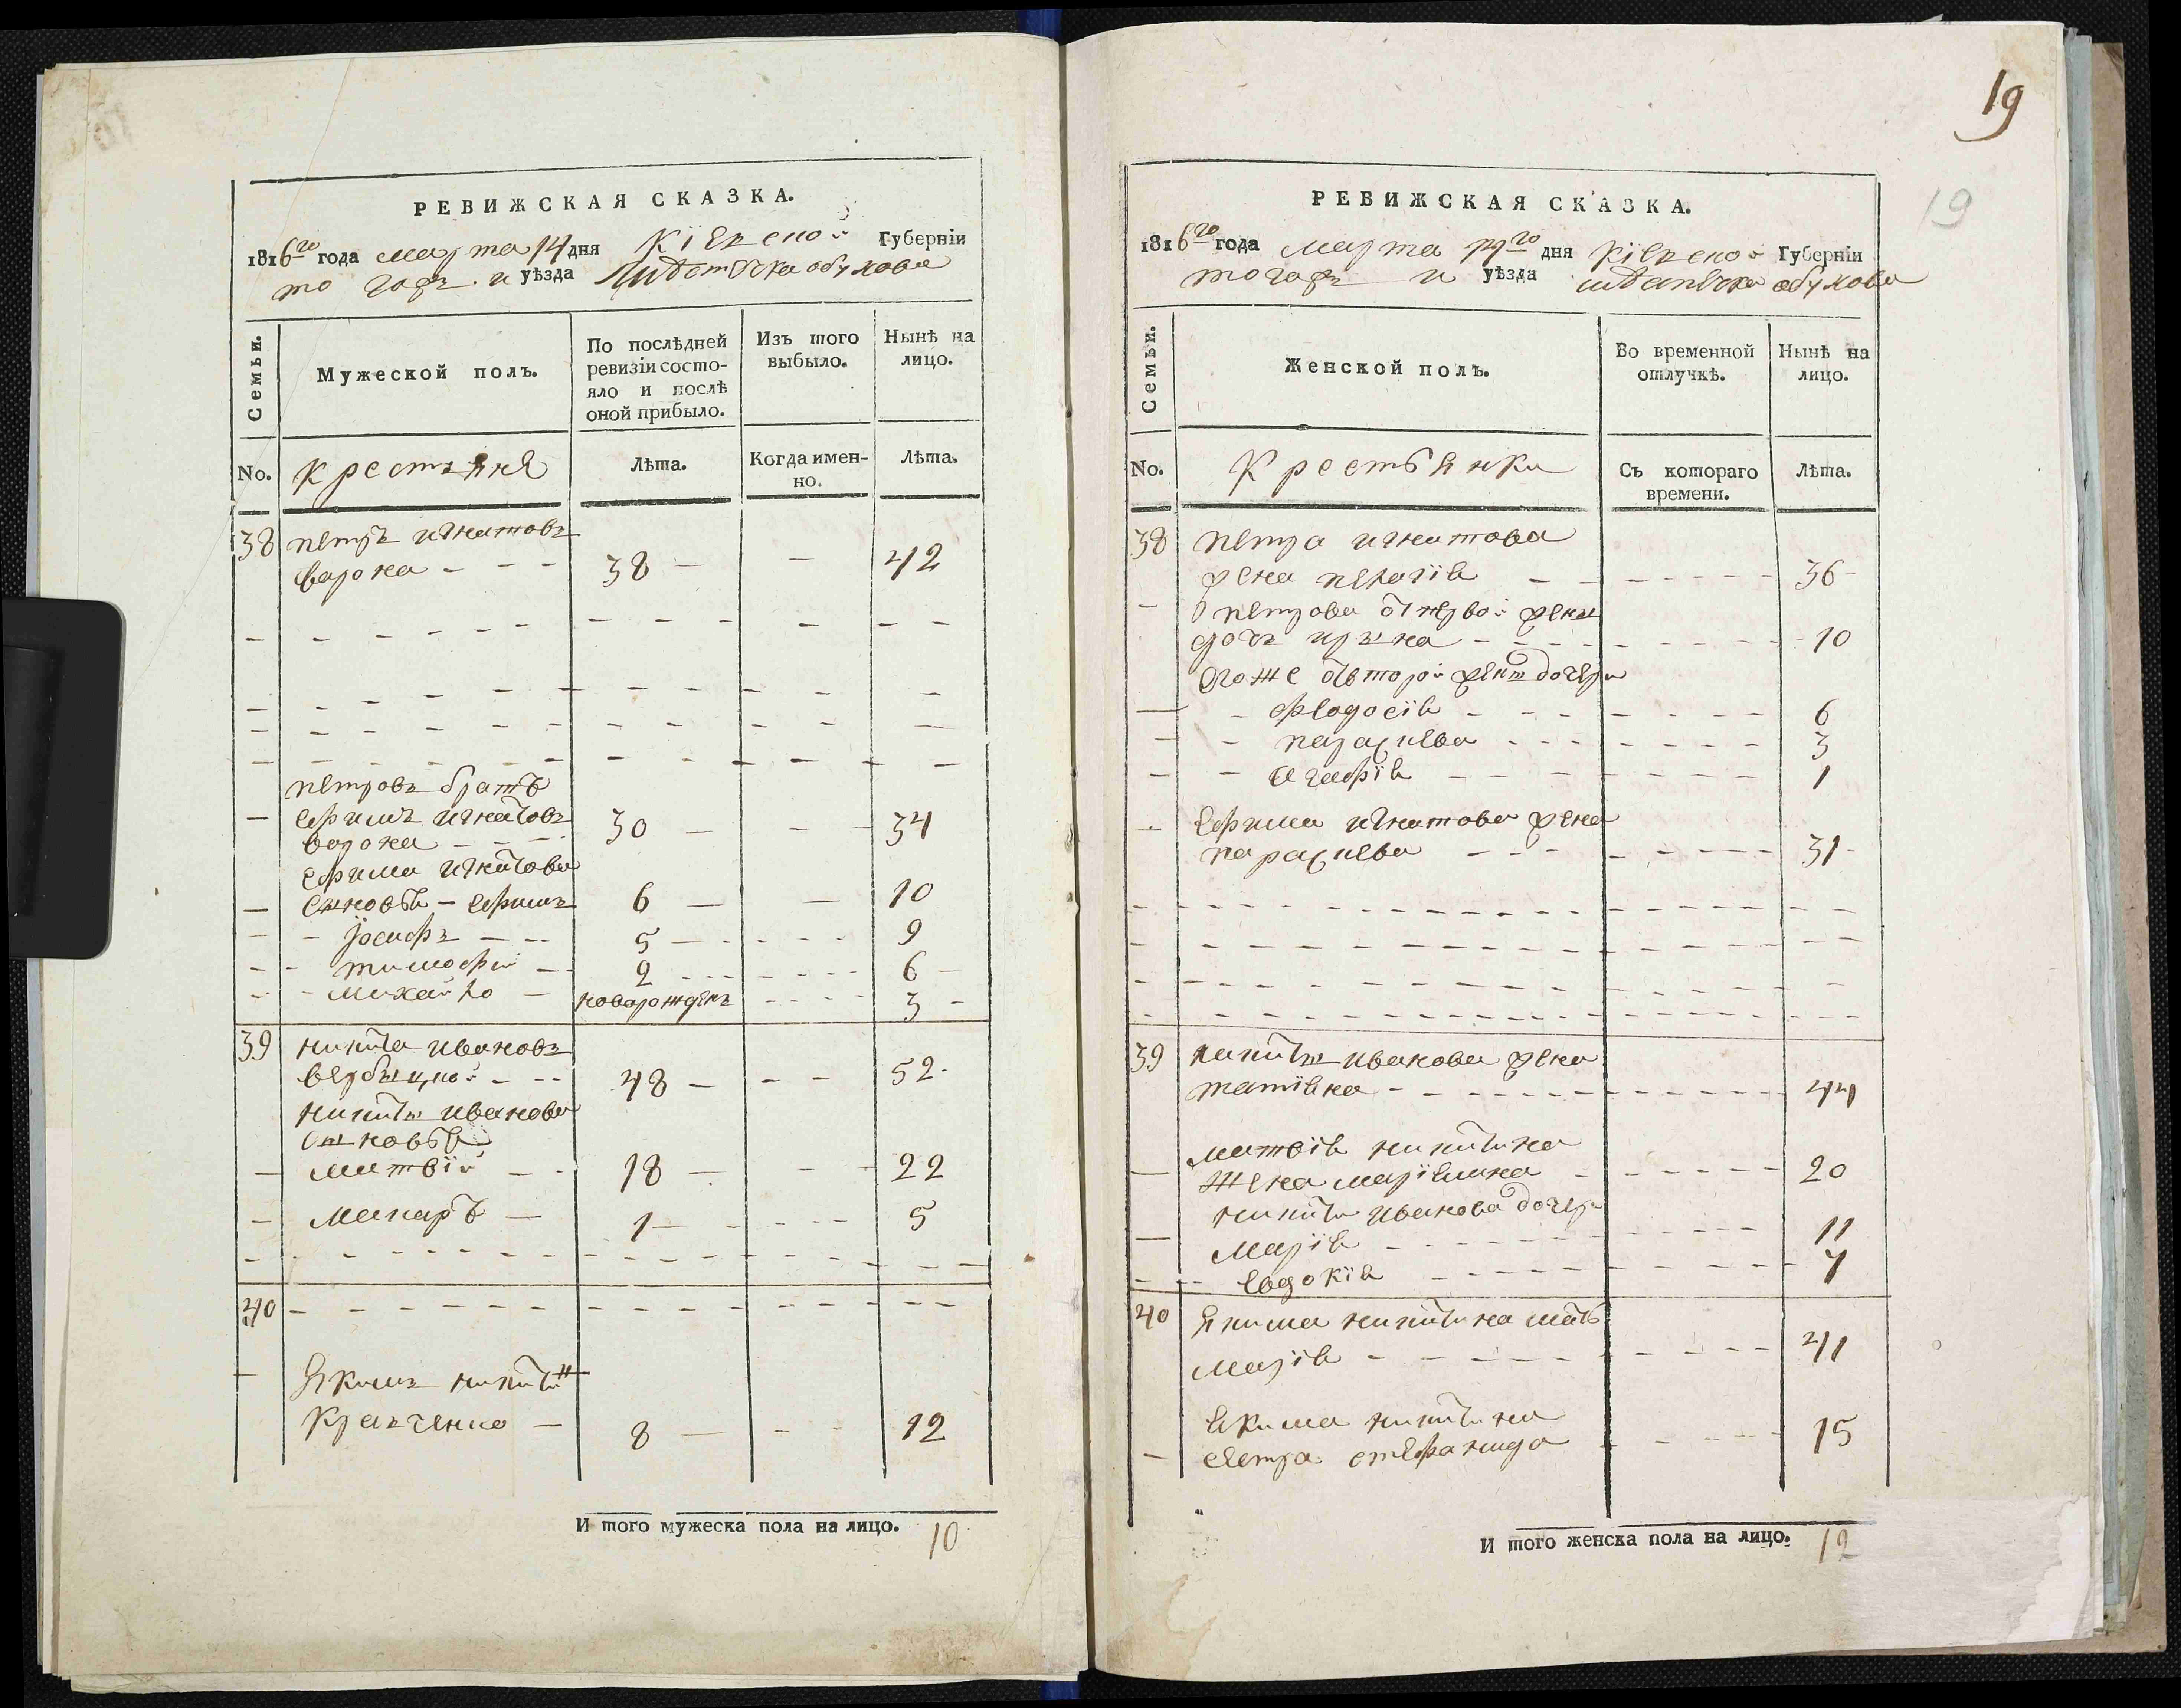 РЕВИЖСКАЯ СКАЗКА.
1816го года марта 14 дня Кіевской Губерніи
того жъ и уѣзда мѣстѣчка обухова
Семьи.
Мужеской полъ.
По послѣдней
ревизіи состо-
яло и послѣ
оной прибыло.
Изъ того
выбыло.
Нынѣ на
лицо.
No.
крестьяня
Лѣта.
Когда имен-
но.
Лѣта.
38 петръ игнатовъ
варона - - - 38 - - 42
петровъ братъ
- ефимъ игнатовъ 30 - - 34
ворона - - -
ефима игнатова
- сыновья - ефимъ 6 - - 10
- - Іосифъ - - 5 - - 9
- - тимофей - 2 - - 6
- - михайло - новорожденъ - - 3
39 никита ивановъ
вербицкой - - - 48 - - - 52
никиты иванова
сыновья
- матвій - - 18 - - - 22
- макаръ - 1 - - 5
40 - - - - - - - - - - - - - -
- Якимъ никитинъ
кравченко - 8 - - - 12
И того мужеска пола на лицо. 10
19
19
РЕВИЖСКАЯ СКАЗКА.
1816го года марта 14го дня кіевской Губерніи
того жъ и уѣзда мѣстѣчка обухова
Семьи.
Женской полъ.
Во временной
отлучкѣ.
Нынѣ на
лицо.
No.
Крестьянки
Съ котораго
времени.
Лѣта.
38 петра игнатова
жена пелагія - - - - 36
- петрова от первой жены
дочь ирына - - - - 10
егоже от второй жены дочери
- - феодосія - - - - 6
- - параскева - - - - 3
- - агафія - - - - 1
- ефима игнатова жена
параскева - - - - 31
39 никиты иванова жена
татіяна - - - - 44
матвія никитина
- жена маріямна - - - - 20
никиты иванова дочери
- марія - - - - 11
- - евдокія - - - - 7
40 Якима никитина мать
марія - - - - 41
якима никитина
- сестра стефанида - - - - 15
И того женска пола на лицо. 12